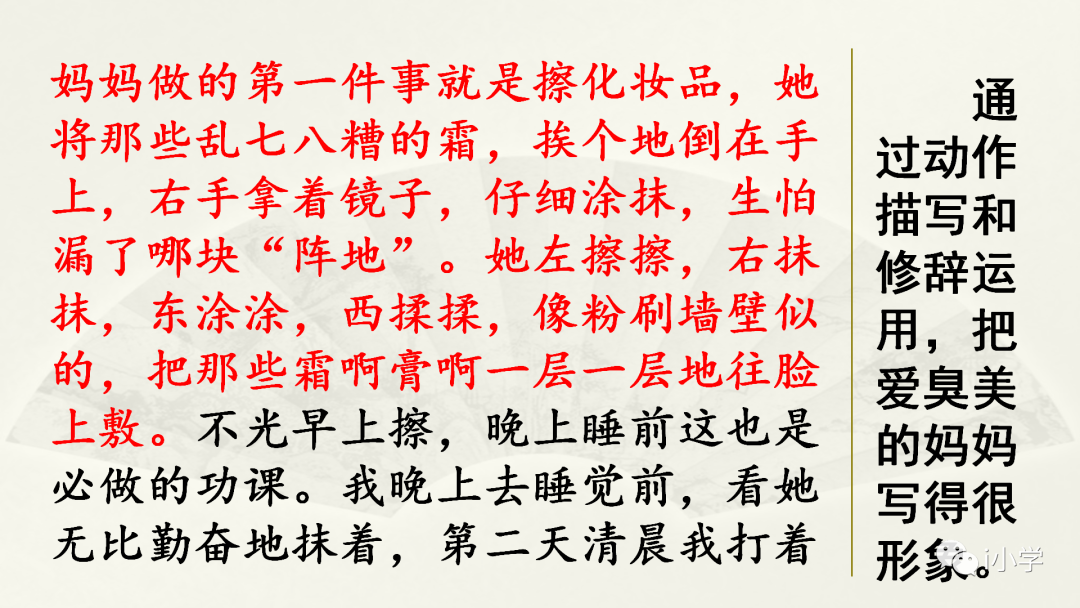 妈妈做的第一件事就是擦化妆品，她
将那些乱七八糟的霜，挨个地倒在手
上，右手拿着镜子，仔细涂抹，生怕
漏了哪块“阵地”。她左擦擦，右抹
抹，东涂涂，西揉揉，像粉刷墙壁似
的，把那些霜啊膏啊一层一层地往脸
上敷。不光早上擦，晚上睡前这也是
必做的功课。我晚上去睡觉前，看她
无比勤奋地抹着，第二天清晨我打着
通
过动作
描写和
修辞运
用，把
爱臭美
的妈妈
写得很
形象。
i小学